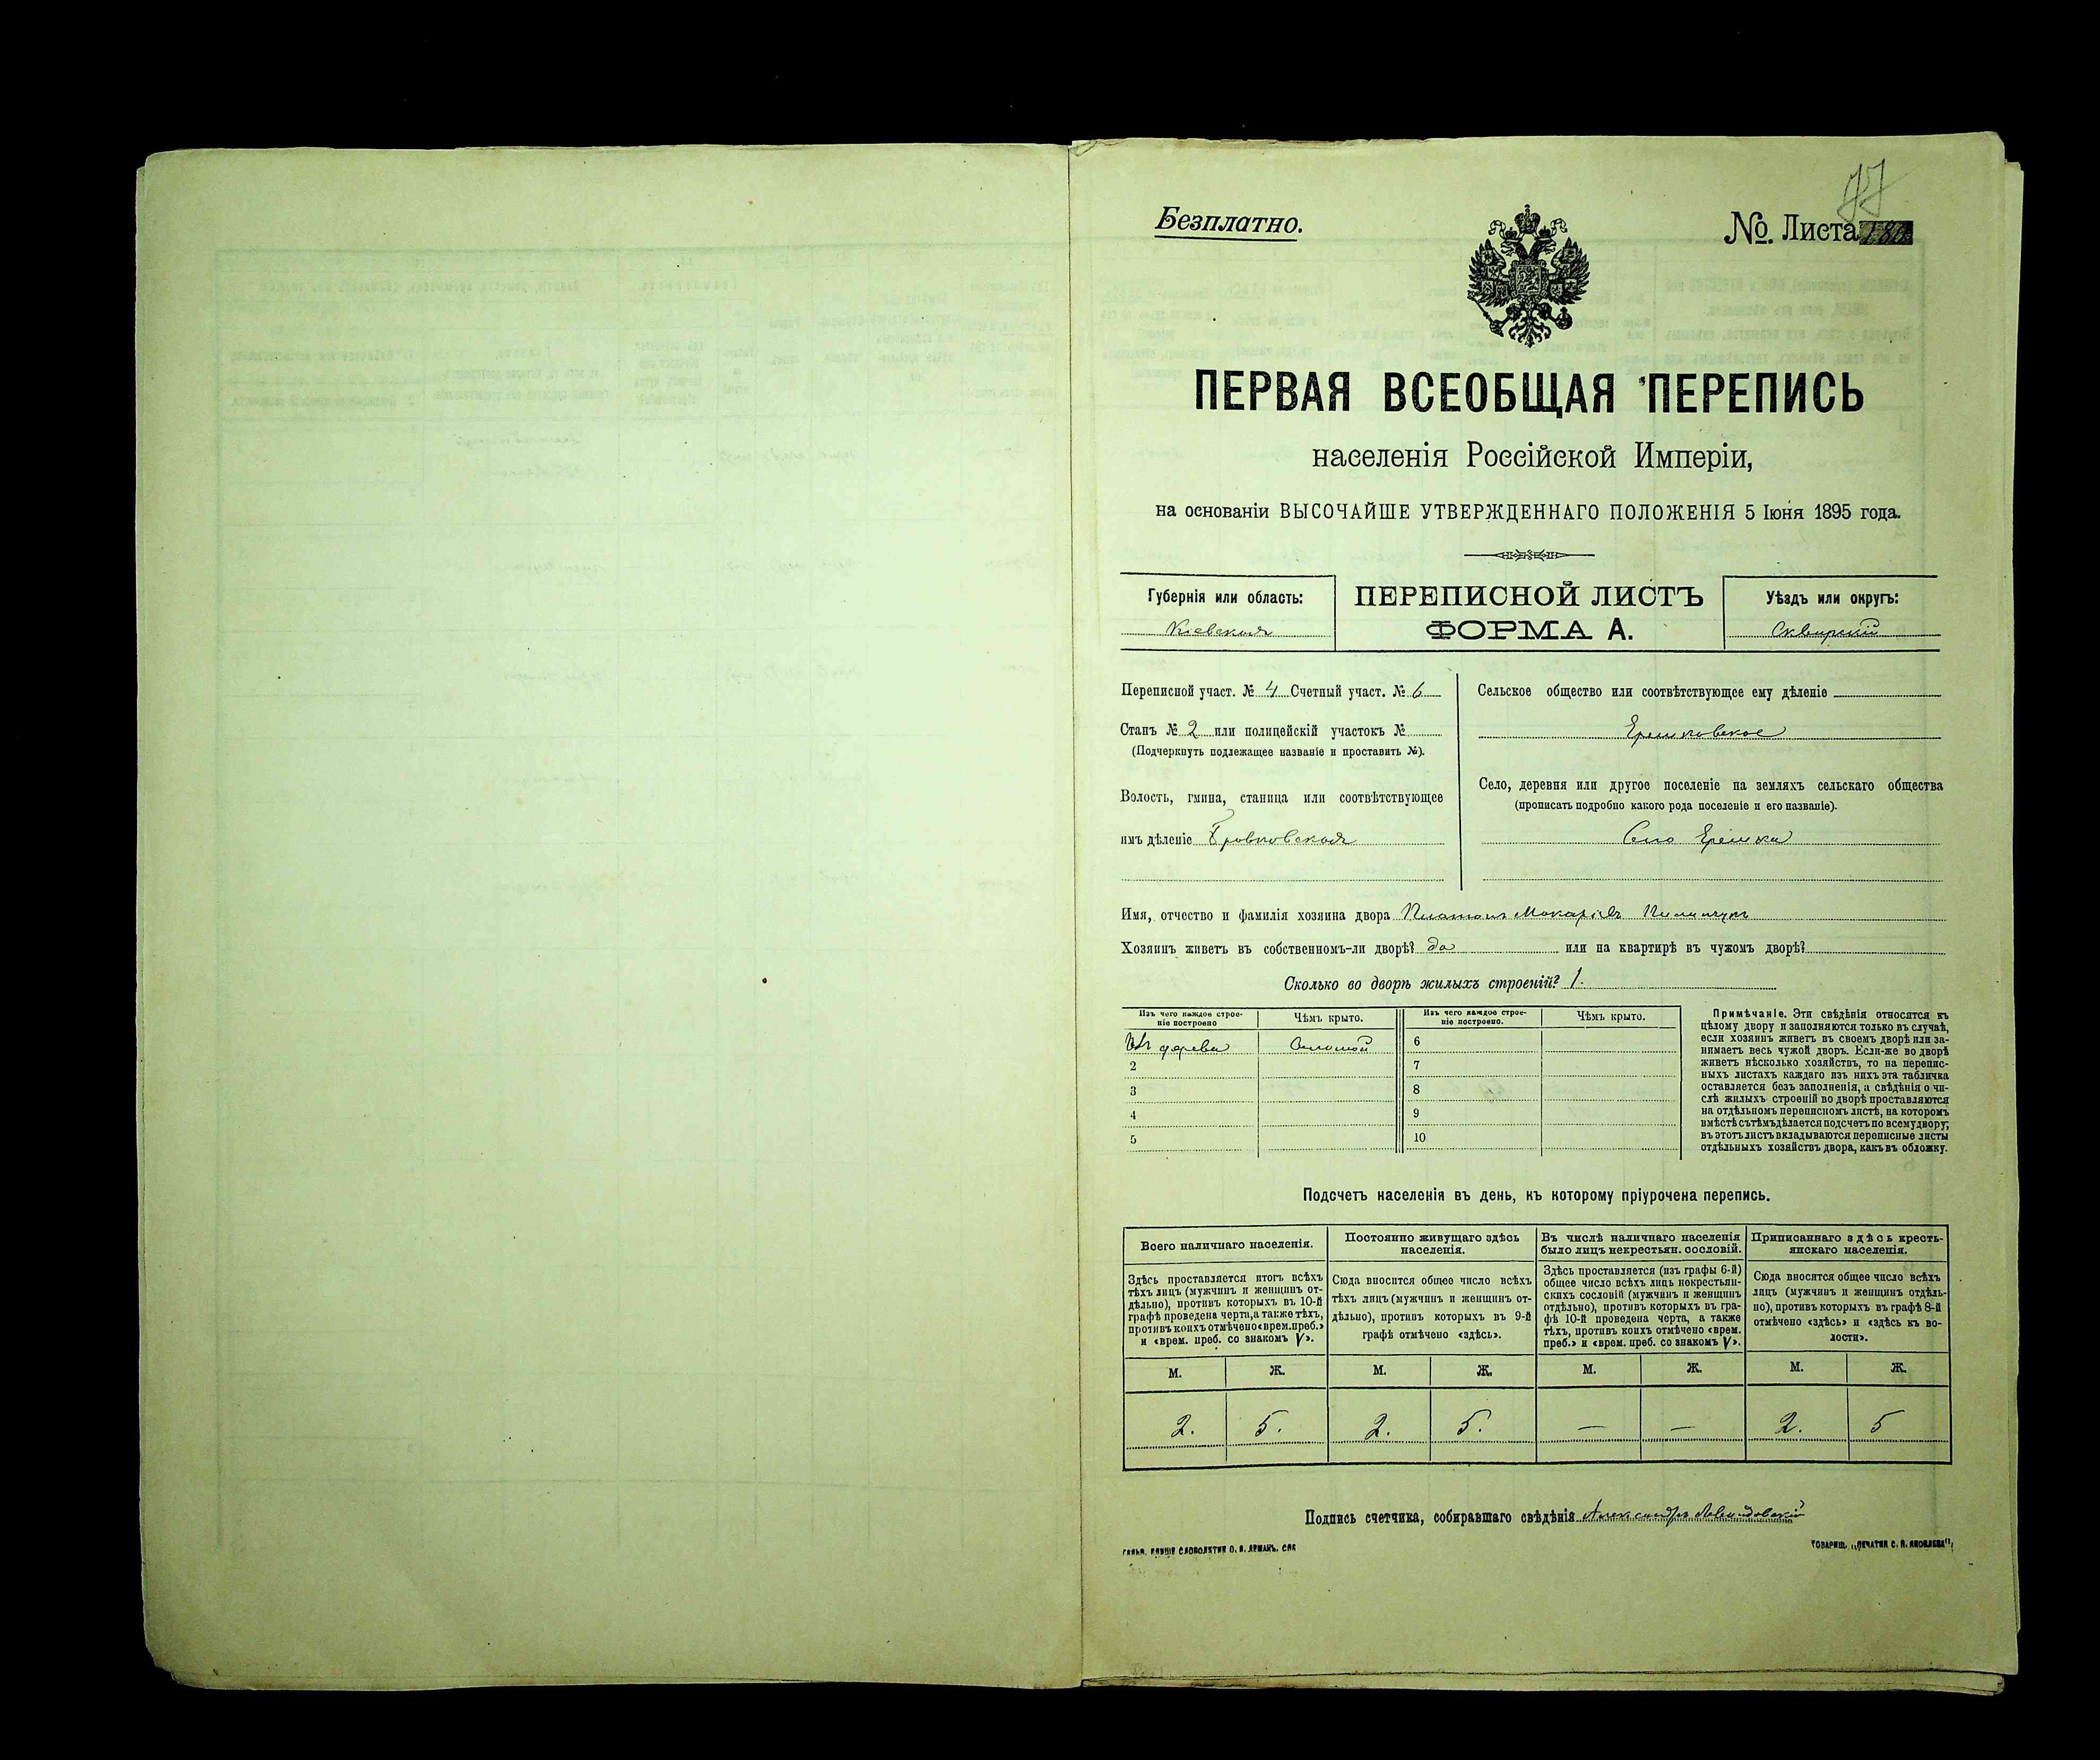 Безплатно.
№. Листа 180
ПЕРВАЯ ВСЕОБЩАЯ ПЕРЕПИСЬ
населенія Россійской Имперіи,
на основаніи ВЫСОЧАЙШЕ УТВЕРЖДЕННАГО ПОЛОЖЕНІЯ 5 Іюня 1895 года.
Губернія или область:
Кіевская
ПЕРЕПИСНОЙ ЛИСТЪ
ФОРМА А.
Уѣздъ или округъ:
Сквирскій
Переписной участ. № 4 Счетный участ. № 6
Станъ № 2 или полицейскій участокъ №
(Подчеркнуть подлежащее названіе и проставить №).
Волость, гмина, станица или соотвѣтствующее
имъ дѣленіе Бровковская
Сельское общество или соотвѣтствующее ему дѣленіе
Ерешковское
Село, деревня или другое поселеніе на земляхъ сельскаго общества
(прописать подробно какого рода поселеніе и его названіе).
Село Ерешки
Имя, отчество и фамилія хозяина двора Платонъ Макаріевъ
Хозяинъ живетъ въ собственномъ-ли дворѣ? да или на квартирѣ въ чужомъ дворѣ?
Сколько во дворѣ жилыхъ строеній? 1.
Изъ чего каждое строе-
ніе построено
Чѣмъ крыто.
Изъ чего каждое строе-
ніе построено.
Чѣмъ крыто.
Изъ дерева Соломой 6
2 7
3 8
4 9
5 10
Примѣчаніе. Эти свѣдѣнія относятся къ
цѣлому двору и заполняются только въ случаѣ,
если хозяинъ живетъ въ своемъ дворѣ или за-
нимаетъ весь чужой дворъ. Если-же во дворѣ
живетъ нѣсколько хозяйствъ, то на перепис-
ныхъ листахъ каждаго изъ нихъ эта табличка
оставляется безъ заполненія, а свѣдѣнія о чи-
слѣ жилыхъ строеній во дворѣ проставляются
на отдѣльномъ переписномъ листѣ, на которомъ
вмѣстѣ съ тѣмъ дѣлается подсчетъ по всему двору;
въ этотъ листъ вкладываются переписные листы
отдѣльныхъ хозяйствъ двора, какъ въ обложку.
Подсчетъ населенія въ день, къ которому пріурочена перепись.
Всего наличнаго населенія.
Здѣсь проставляется итогъ всѣхъ
тѣхъ лицъ (мужчинъ и женщинъ от-
дѣльно), противъ которыхъ въ 10-й
графѣ проведена черта, а также тѣхъ,
противъ коихъ отмѣчено «врем. преб.»
и «врем. преб. со знакомъ V».
Постоянно живущаго здѣсь
населенія.
Сюда вносится общее число всѣхъ
тѣхъ лицъ (мужчинъ и женщинъ от-
дѣльно), противъ которыхъ въ 9-й
графѣ отмѣчено «здѣсь».
Въ числѣ наличнаго населенія
было лицъ некрестьян. сословій.
Здѣсь проставляется (изъ графы 6-й)
общее число всѣхъ лицъ некрестьян-
скихъ сословій (мужчинъ и женщинъ
отдѣльно), противъ которыхъ въ гра-
фѣ 10-й проведена черта, а также
тѣхъ, противъ коихъ отмѣчено «врем.
преб.» и «врем. преб. со знакомъ V».
Приписаннаго здѣсь кресть-
янскаго населенія.
Сюда вносится общее число всѣхъ
лицъ (мужчинъ и женщинъ отдѣль-
но), противъ которыхъ въ графѣ 8-й
отмѣчено «здѣсь» и «здѣсь къ во-
лости».
М. Ж. М. Ж. М. Ж. М. Ж.
2. 5. 2. 5. — — 2. 5
Подпись счетчика, собиравшаго свѣдѣнія Александръ Левандовскій
СЛОВОЛИТНЯ О. И. ЛЕМАНЪ. СПБ
ТОВАРИЩ. „ПЕЧАТНЯ С. П. ЯКОВЛЕВА“;